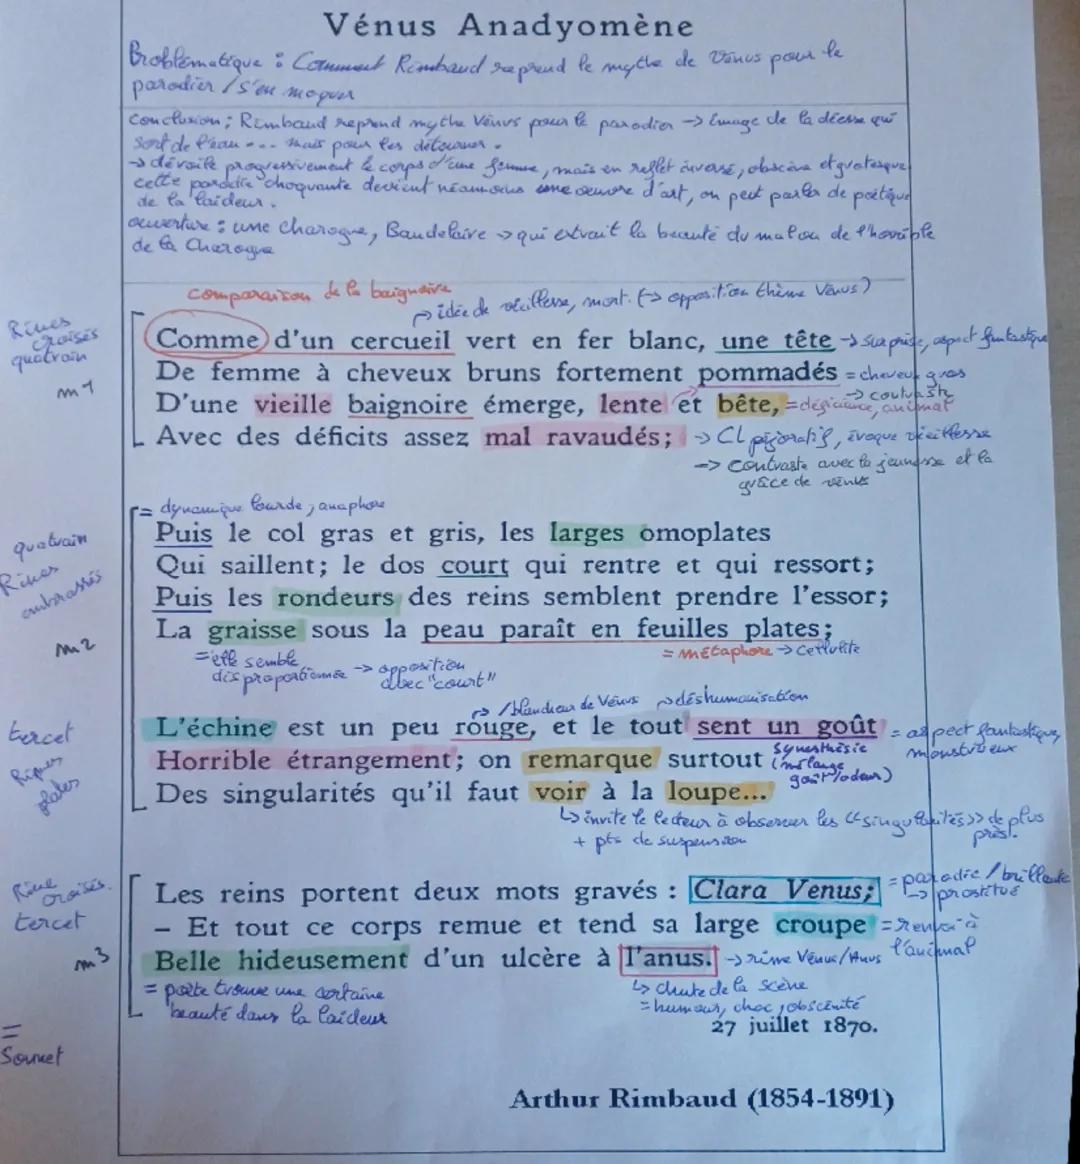 Vénus Anadyomène
Problématique : Comment Rimbaud reprend le mythe de Vénus pour le
parodier / s'en moquer
Conclusion ; Rimbaud reprend mythe Vénus pour le parodier → Image de la déesse qui
sort de l'eau ... mais pour les détourner.
→ dévoile progressivement le corps d'une femme, mais en reflet inversé, obscène et grotesque
cette parodie choquante devient néanmoins une oeuvre d'art, on peut parler de poétique
de la laideur.
ouverture : une charogne, Baudelaire → qui extrait la beauté du mal ou de l'horrible
de la Charogne
comparaison de la baignoire
→ idée de vieillesse, mort. (→ opposition thème Vénus)
Rimes
croisées
quatrain
m1
Comme d'un cercueil vert en fer blanc, une tête → surprise, aspect fantastique
De femme à cheveux bruns fortement pommadés = cheveux gras
→ contraste
D'une vieille baignoire émerge, lente et bête, = déficience, animal
Avec des déficits assez mal ravaudés; → CL péjoratif, évoque vieillesse
→ contraste avec la jeunesse et la
grâce de vénus
= dynamique lourde, anaphore
quatrain
Rimes
embrassés
m2
Puis le col gras et gris, les larges omoplates
Qui saillent; le dos court qui rentre et qui ressort;
Puis les rondeurs des reins semblent prendre l'essor;
La graisse sous la peau paraît en feuilles plates;
= elle semble
disproportionnée → opposition
avec "court"
= métaphore → cellulite
→ /blancheur de Vénus
→ déshumanisation
tercet
Rimes
plates
L'échine est un peu rouge, et le tout sent un goût = aspect fantastique,
monstrueux
Horrible étrangement; on remarque surtout
Synesthésie
(mélange
goût/odeur)
Des singularités qu'il faut voir à la loupe...
↳ invite le lecteur à observer les «singularités» de plus
près.
+ pts de suspension
Rime
croisés.
tercet
m3
Les reins portent deux mots gravés : Clara Venus; = parodie / brillante
↳ prostitué
– Et tout ce corps remue et tend sa large croupe = renvoi à
l'animal
Belle hideusement d'un ulcère à l'anus. → rime Vénus/Anus
= poète trouve une certaine
beauté dans la laideur
↳ chute de la scène
= humour, choc, obscénité
=
Sonnet
27 juillet 1870.
Arthur Rimbaud (1854-1891)